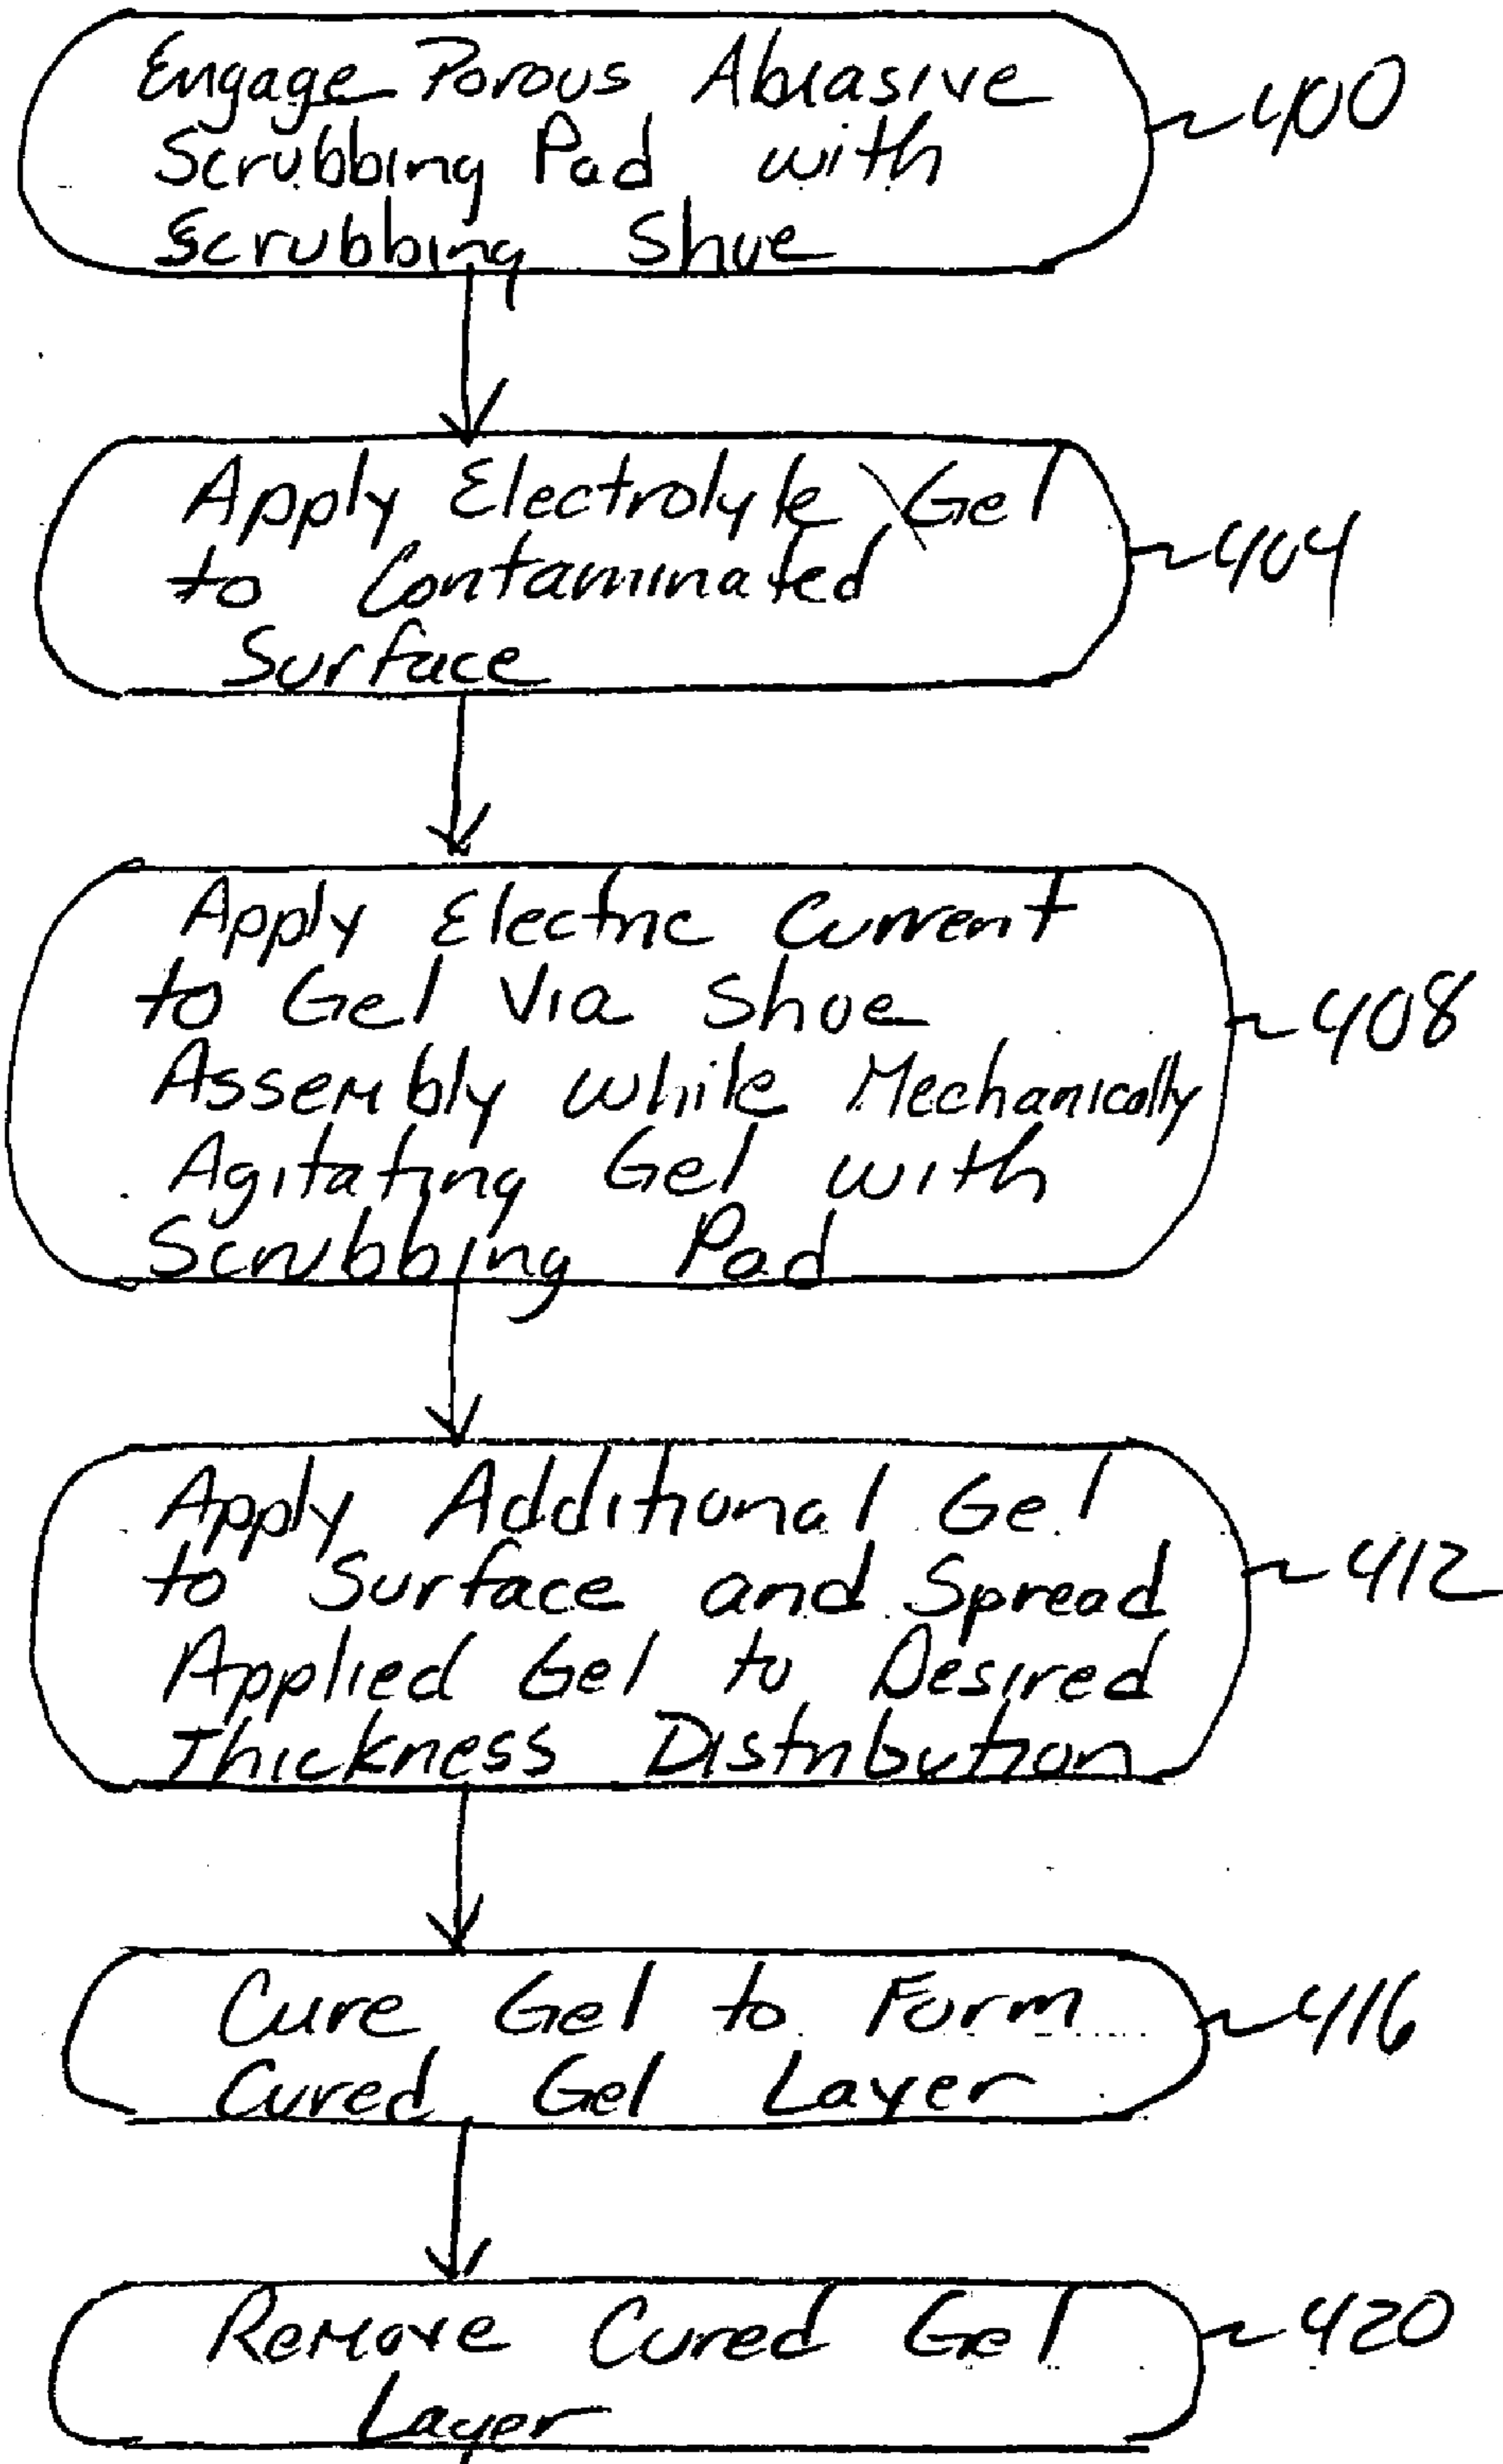 Engage Porous Abrasive ~400
Scrubbing Pad with
Scrubbing Shoe
Apply Electrolyte Gel
to Contaminated ~404
Surface
Apply Electric Current
to Gel Via Shoe ~408
Assembly while Mechanically
Agitating Gel with
Scrubbing Pad
Apply Additional Gel
to Surface and Spread ~412
Applied Gel to Desired
Thickness Distribution
Cure Gel to Form ~416
Cured Gel Layer
Remove Cured Gel ~420
Layer